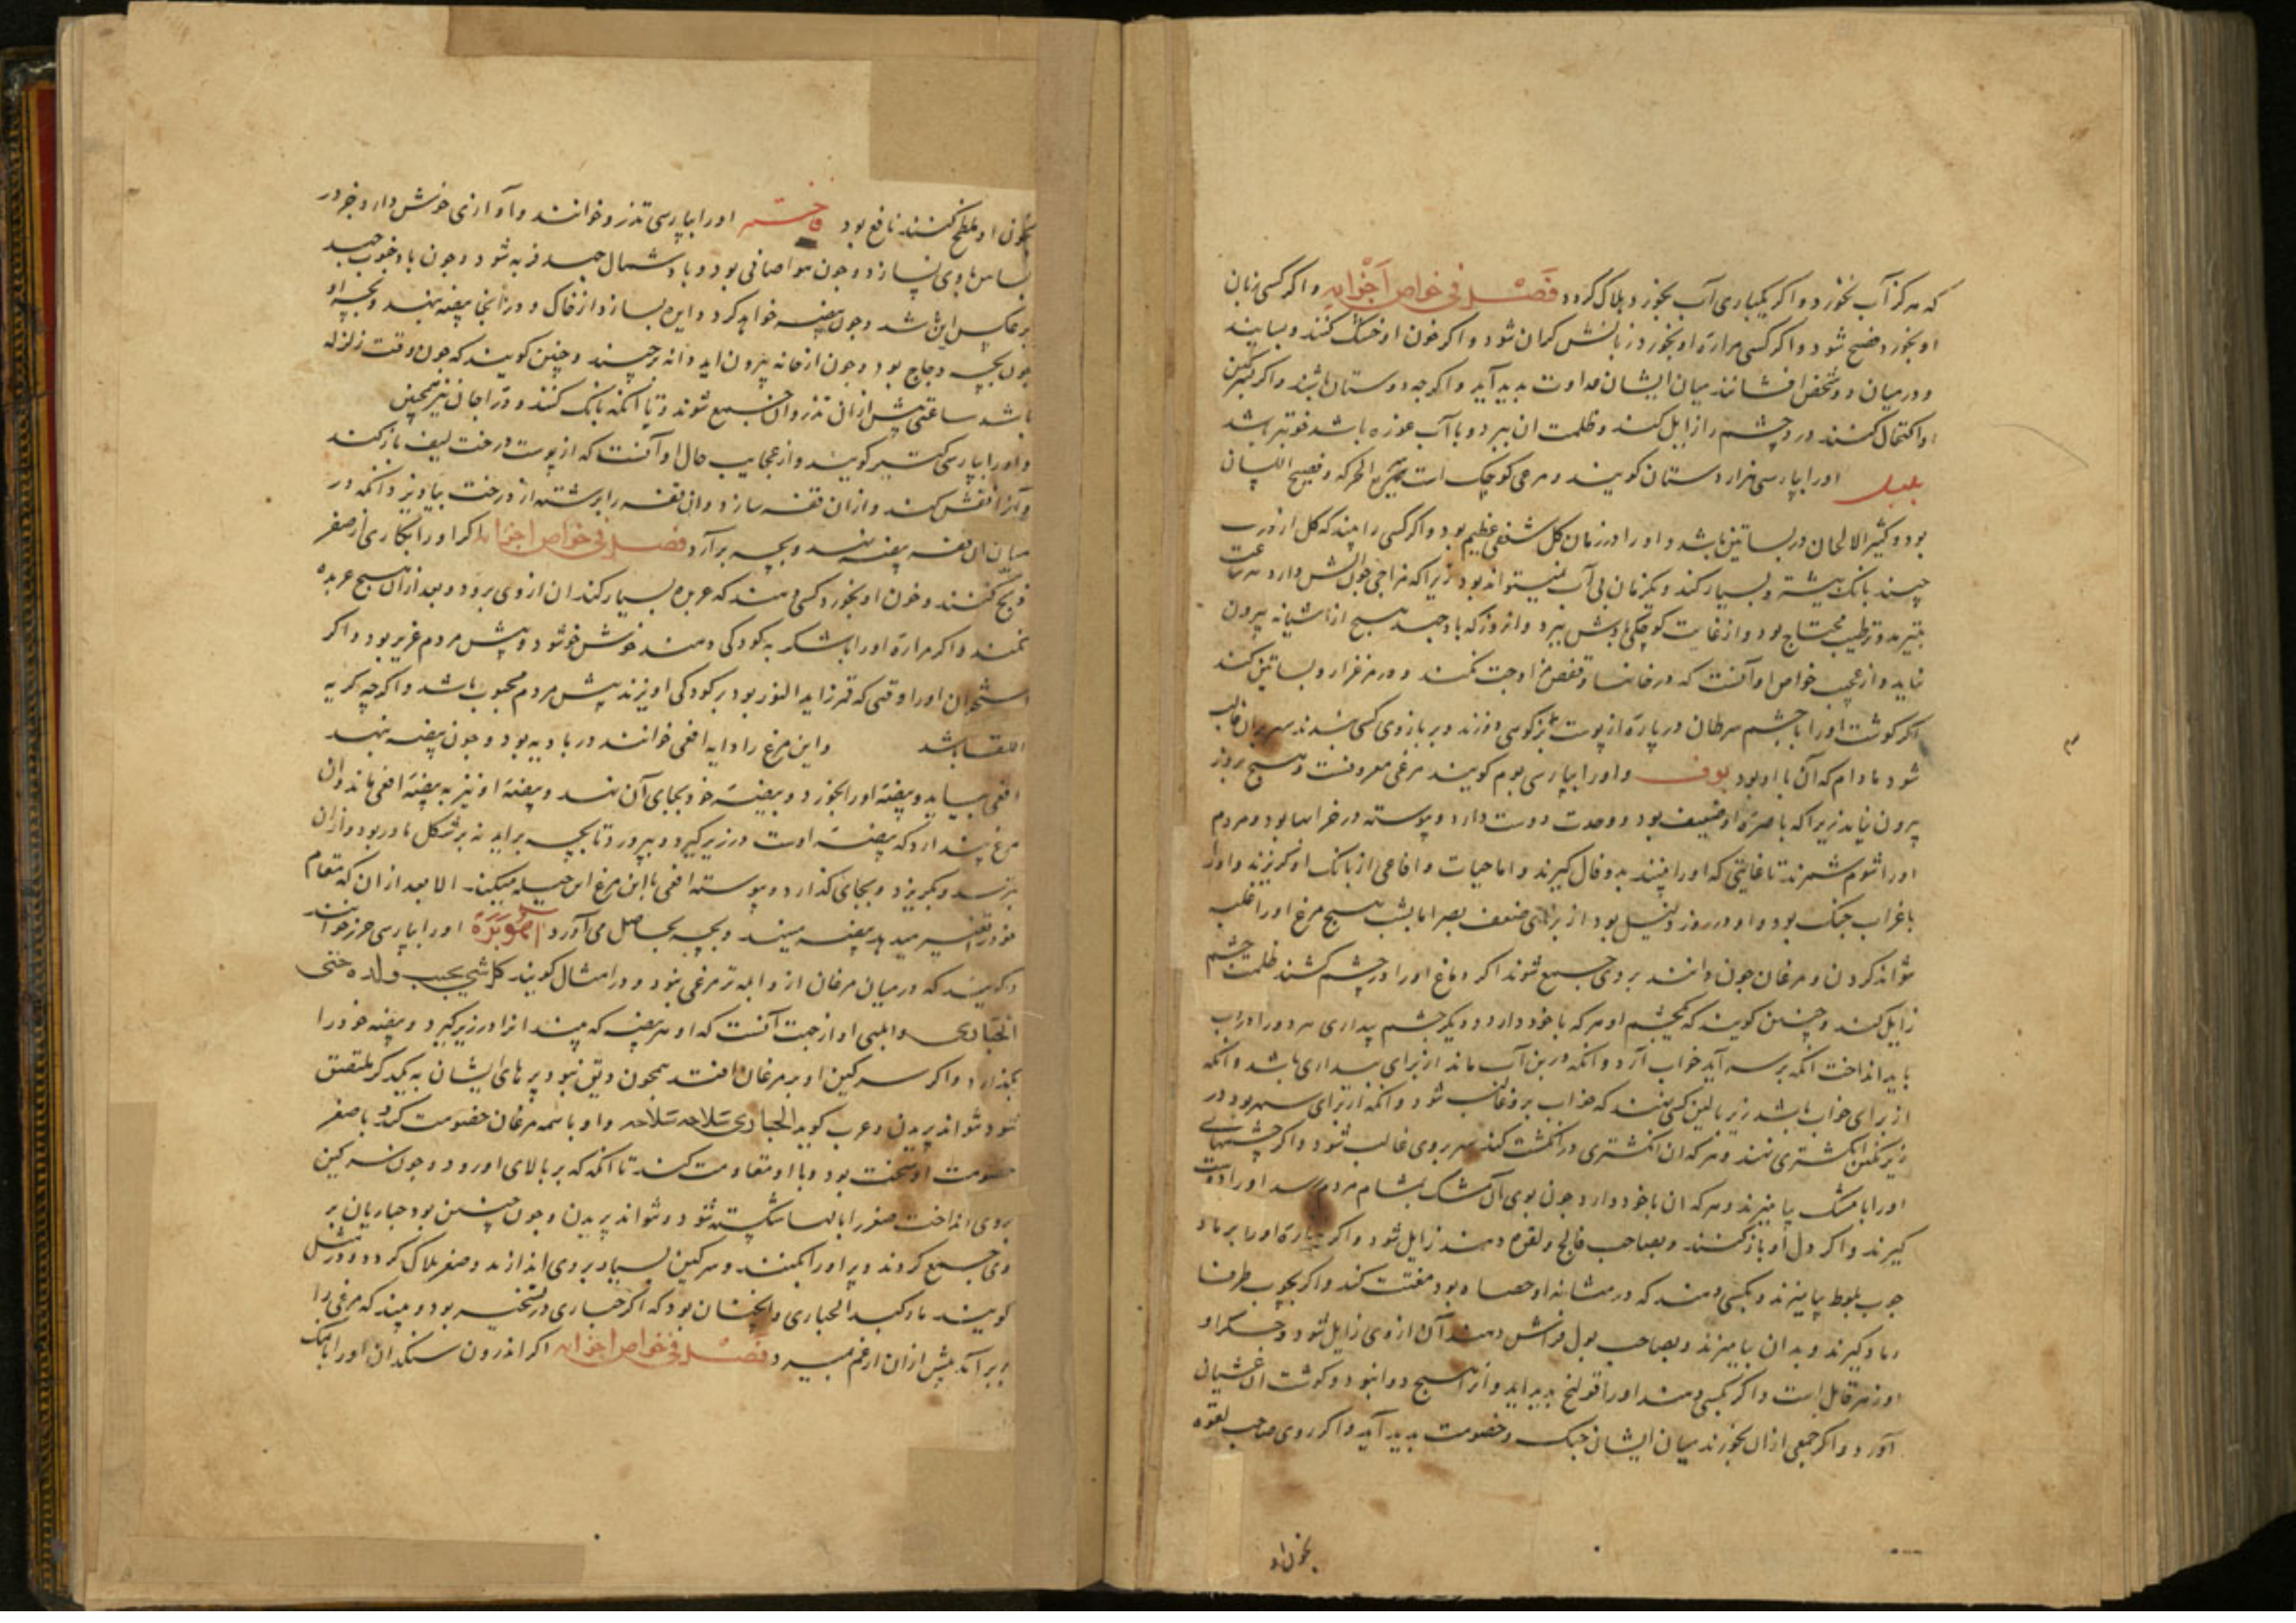 که هرگز آب نخورد و اگر یکباری آب بخورد هلاک گردد فصل فی خواص اجزایه و اگر کسی زبان
او بخورد فصیح شود و اگر کسی مراره او بخورد زبانش گران شود و اگر خون او خشک کنند و بسایند
و در میان دو شخص افشانند میان ایشان عداوت بدید آید و اگرچه دوستان باشند و اگر سرکین
او اکتحال کنند درد چشم را زایل کند و ظلمت ان ببرد و با آب غوره باشد قویتر باشد
بلبل اورا بپارسی هزار دستان کویند و مرغی کوچک است سریع الحرکه و فصیح اللسان
بود و کثیر الالحان در بساتین باشد و اورا در زمان کل شغفی عظیم بود و اکر کسی را بیند که کل از درخت
چیند بانک بیشتر و بسیار کند و یکزمان بی آب نمیتواند بود زیرا که مزاجی دارد
بتبرید و ترطیب محتاج بود و از غایت کوچکی بادش ببرد و انروز که باد جهد هیچ از اشیانه بیرون
نیاید و از عجیب خواص او آنست که در خانها و قفص مزاوجت نکند و در مرغزار و بساتین کند
اکر کوشت اورا با چشم سرطان در پاره از پوست دوزند و بر بازوی کسی بندند سهر بر ان غالب
شود مادام که آن با او بود بوف و اورا بپارسی بوم کویند مرغی معروفست و هیچ بروز
بیرون نیاید زیرا که باصره او ضعیف بود و وحدت دوست دارد و پیوسته در خرابها بود و مردم
اورا شوم شمرند تا غایتی که اورا بینند بدو فال کیرند و اما حیات و افاعی از بانک او کریزند و اورا
با غراب جنک بود و او در روز ذلیل بود از برای ضعف بصر اما بشب هیچ مرغ اورا غلبه
نتواند کردن و مرغان چون دانند بروی جمع شوند اکر دماغ اورا در چشم کشند ظلمت چشم
زایل کند و چنین کویند که یکچشم او هر که با خود دارد و دیکر چشم بیداری هر دو را در آب
باید انداخت انکه بر سر آید خواب آرد و انکه در بن آب ماند از برای بیداری باشد و انکه
از برای خواب باشد زیر بالین کسی نهند که خواب برو غالب شود و انکه از برای سهر بود در
زیر نکین انکشتری نهند و هر که ان انکشتری در انکشت کند سهر بروی غالب شود و اکر چشمهای
اورا با مشک بیامیزند و هر که ان با خود دارد چون بوی آن مشک بمشام مردم رسد اورا دوست
کیرند و اکر دل او باز کنند و بصاحب فالج و لقوه دهند زایل شود و اکر مراره اورا برماد
چوب بلوط بیامیزند و بکسی دهند که در مثانه او حصاه بود مفتت کند و اکر بچوب طرفا
رماد کیرند و بدان بیامیزند و بصاحب بول فراش دهند آن از وی زایل شود و جکر او
او زهر قاتل است و اکر بکسی دهند اورا قولنج بدید اید و از هیچ دوا نبود و کوشت ان غشیان
آورد و اکر جمعی ازان بخورند میان ایشان جنک و خصومت بدید آید و اکر روی صاحب لقوه
بخون او
بخون او ملطخ کنند نافع بود اورا بپارسی تذرو خوانند و آوازی خوش دارد و جز در
بساتین ماوی نسازد و چون هوا صافی بود و باد شمال جهد فربه شود و چون باد جنوب جهد
بر عکس این باشد و چون بیضه خواهد کرد دایره بسازد از خاک و در انجا بیضه بنهد و بچه او
چون بچه دجاج بود و چون از خانه بیرون اید دانه برچیند و چنین کویند که چون وقت زلزله
باشد ساعتی پیش ازان تذروان جمع شوند و تا انکه بانک کنند و دراجان نیز همچنین
و اورا بپارسی کویند و از عجایب حال او آنست که از پوست درخت لیف باز کند
و از ان قفه سازد وان قفه را برشته از درخت بیاویزد و انکه در
میان ان قفه بیضه نهد و بچه برآرد فصل فی خواص اجزایه اکر اورا بکاردی از صفر
ذبح کنند و خون او بخورد کسی دهند که عربده بسیار کند ان از وی برود و بعد ازان هیچ عربده
نکند و اکر مراره اورا با شکر به کودکی دهند خوش خو شود و پیش مردم عزیز بود و اکر
استخوان اورا وقتی که قمر زاید النور بود بر کودکی اویزند پیش مردم محبوب باشد و اکرچه کریه
اللقا باشد واین مرغ را دایه افعی خوانند در بادیه بود و چون بیضه نهد
افعی بیاید و بیضه اورا بخورد و بیضه خود بجای آن نهد و بیضه او نیز به بیضه افعی ماند وان
مرغ پندارد که بیضه اوست در زیر کیرد و بپرورد تا بچه براید نه بر شکل مادر بود و ازان
بترسد و بکریزد و بجای کذارد و پیوسته افعی با این مرغ این حیله میکند الا بعد از ان که مقام
خود را تغییر میدهد بیضه مینهد و بچه بحاصل می آورد اورا بپارسی خوانند
و کویند که در میان مرغان از و ابله تر مرغی نبود و در امثال کویند کل شی یحب ولده حتی
الحباری و ابلهی او از جهت آنست که او هر بیضه که بیند انرا در زیر کیرد و بیضه خود را
بکذارد و اکر سرکین او بر مرغان افتد همچون دبق بود پرهای ایشان به یکدیکر ملتصق
شود نتواند پریدن و عرب کوید الحباری سلاحه سلاحه و او با همه مرغان خصومت کند و با صقر
خصومت او سخت بود و با او مقاومت کند تا انکه که بر بالای او رود و چون سرکین
بروی انداخت صقر را بالها شکسته شود و نتواند پریدن و چون چنین بود حباریان بر
وی جمع کردند و پر اورا بکنند و سرکین بسیار بروی اندازند و صقر هلاک کردد و در مثل
کویند مات کمد الحباری وانچنان بود که اکر حباری در تحسیر بود و بیند که مرغی را
پر برآمد پیش ازان از غم بمیرد فصل فی خواص اجزایه اکر اندرون سنکدان اورا با نمک